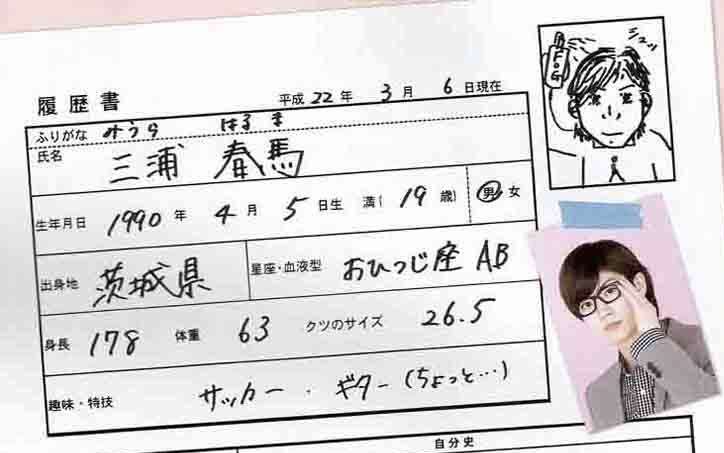 履歴書 平成 22 年 3 月 6 日現在
ふりがな みうら はるま
氏名 三浦 春馬
生年月日 1990 年 4 月 5 日生 満( 19 歳) 男 女
出身地 茨城県 星座・血液型 おひつじ座 AB
身長 178 体重 63 クツのサイズ 26.5
趣味・特技 サッカー・ギター(ちょっと…)
自分史
シュッ
FOG